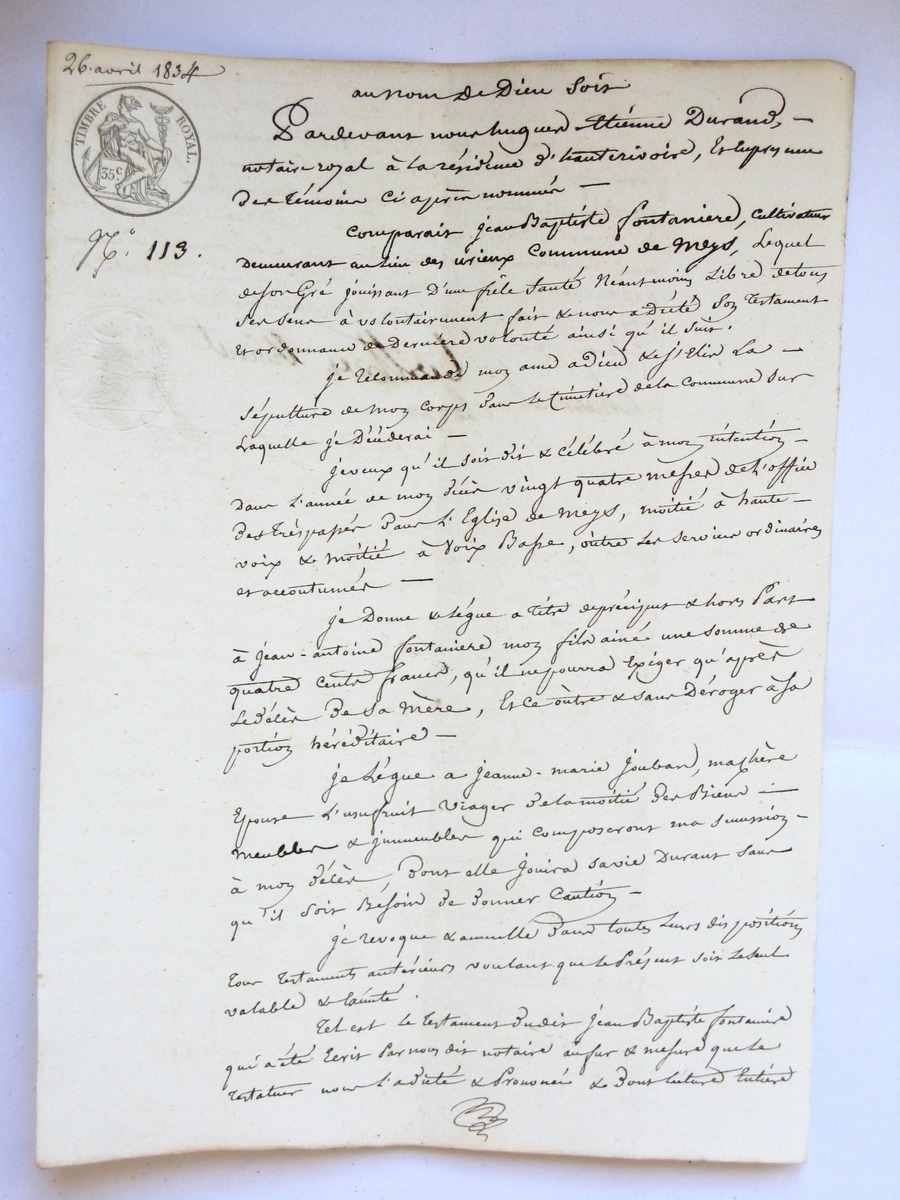 26. avril 1834
TIMBRE ROYAL.
35 c.
N.° 113.
au nom de Dieu soit
Pardevant nous hugues Etienne Durand, —
notaire royal à la résidence d'hauterivoire, Et en presence
des témoins Ci après nommés —
Comparait jean Baptiste fontaniere, cultivateur
demeurant au lieu des urieux Commune de Meys, Lequel
de son Gré jouissant d'une frêle santé Néantmoins Libre de tous
ses sens à volontairement fait & nous a dicté son testament
et ordonnance de derniere volonté ainsi qu'il suit.
je recommande mon ame a dieu & j'Elis La —
sépulture de mon corps dans le Cimetière de la commune sur
Laquelle je Décéderai —
je veux qu'il soit dit & célébré à mon intention —
dans l'année de mon décès vingt quatre messes de l'office
des trépassés dans l'Eglise de Meys, moitié à haute —
voix & moitié à voix Basse, outre les services ordinaires
et accoutumés —
je donne & Lègue a titre de préciput & hors Part
à jean-antoine fontaniere mon fils ainé une somme de
quatre cents francs, qu'il ne pourra Exiger qu'après
Le décès de sa mère, Et ce outre & sans déroger à sa
portion héréditaire —
je Lègue a jeanne-marie Jouban, ma chère
Epouse L'usufruit viager de la moitié des Biens —
meubles & immeubles qui composeront ma succession —
à mon décès, dont elle jouira sa vie durant sans
qu'il soit Bésoin de donner Caution —
je revoque & annulle dans toutes leurs dispositions
tous testaments antérieurs voulant que le Présent soit le seul
valable & Exécuté.
tel est le testament dudit jean Baptiste fontaniere
qui a été Ecrit Par nous dit notaire au fur & mesure que le
testateur nous l'a dicté & Prononcé & dont lecture Entière